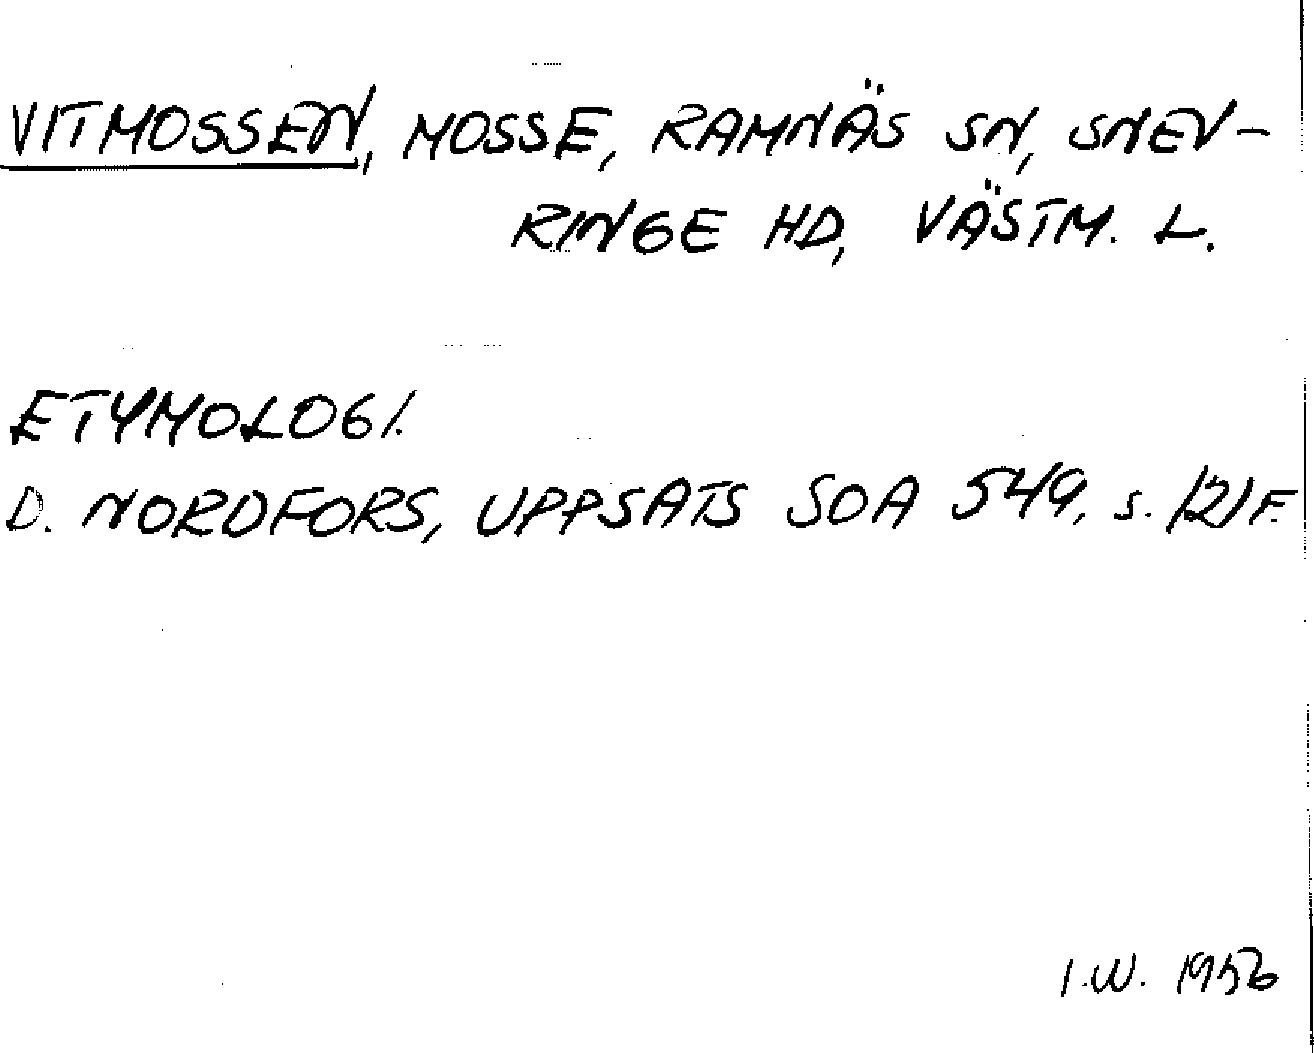 VITMOSSEN, MOSSE, RAMNÄS SN, SNEV-
RINGE HD, VÄSTM. L.
ETYMOLOGI.
D. NORDFORS, UPPSATS SOA 549, S. 121 F.
I.W. 1956